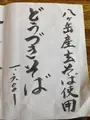 八ヶ岳産玄そば使用
どうづきそば